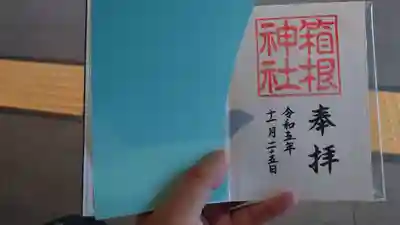 箱根
神社
奉拝
令和五年
十一月二十五日